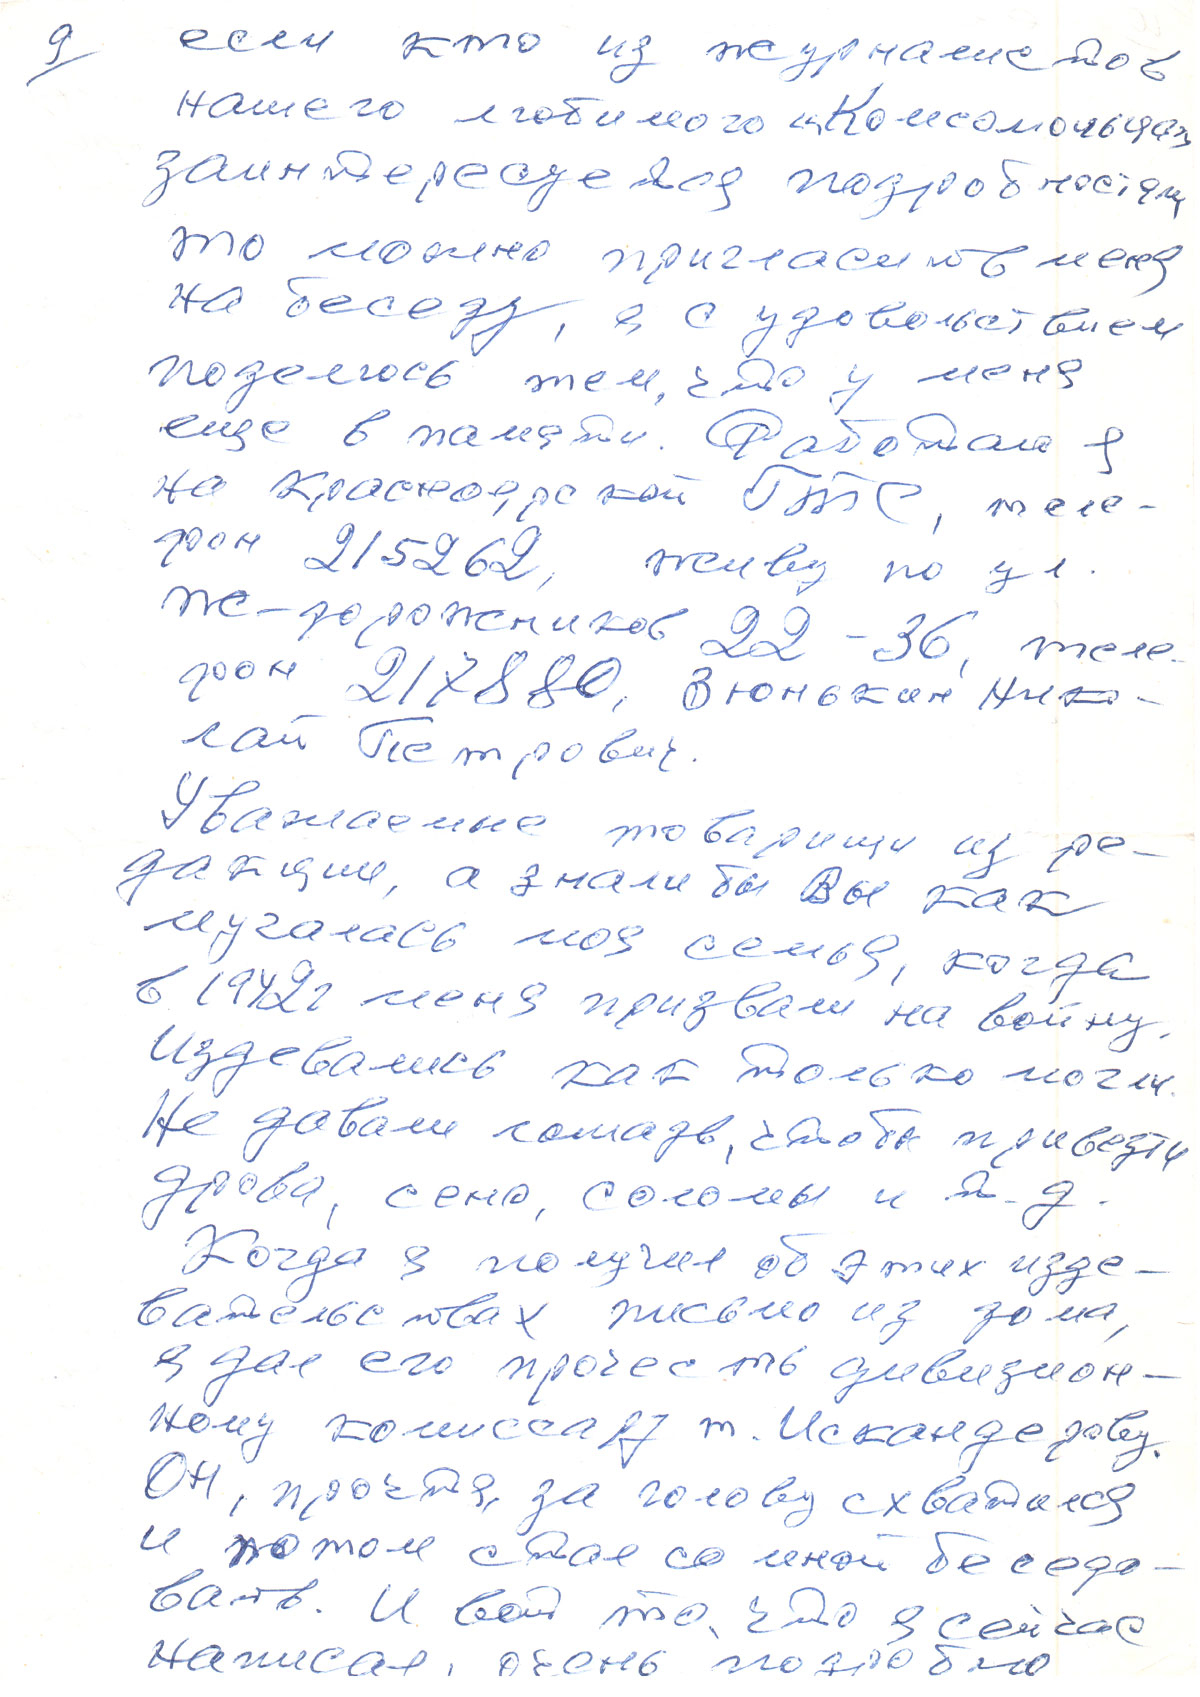 9 если кто из журналистов
нашего любимого "Комсомольца"
заинтересуется подробностями
то можно пригласить меня
на беседу, я с удовольствием
поделюсь тем, что у меня
еще в памяти. Работаю я
на Красноярской ГТС, теле-
фон 215262, живу по ул.
же-дорожников 22-36, теле-
фон 217880, Зюнькин Нико-
лай Петрович.
Уважаемые товарищи из ре-
дакции, а знали бы Вы как
мучалась моя семья, когда
в 1942г меня призвали на войну.
Издевались как только могли.
Не давали лошадь, чтобы привезти
дрова, сено, соломы и т.д.
Когда я получил об этих изде-
вательствах письмо из дома,
я дал его прочесть дивизион-
ному комиссару т. Искандерову.
Он, прочтя, за голову схватился
и потом стал со мной беседо-
вать. И вот то, что я сейчас
написал, очень подробно